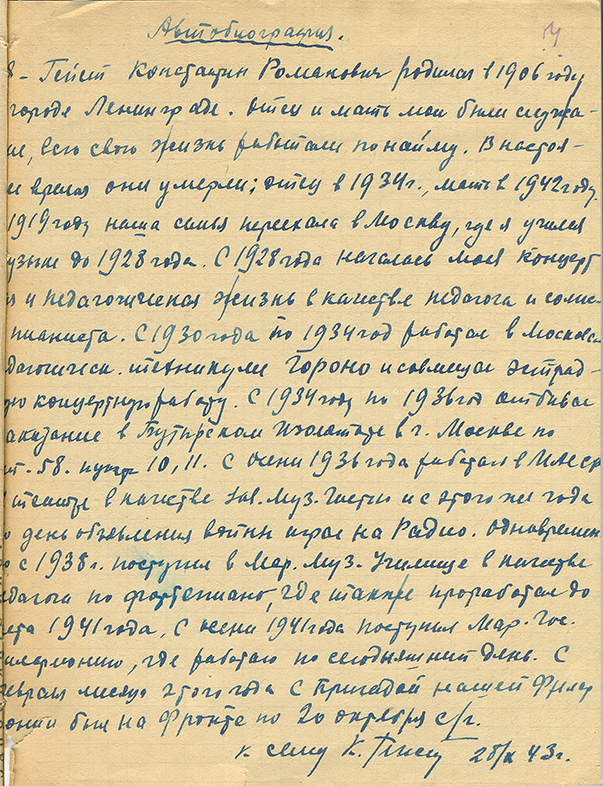 Автобиография.
Я - Гейст Константин Романович родился в 1906 году
городе Ленинграде. Отец и мать мои были служа-
ие, всю свою жизнь работали по найму. В настоя-
ее время они умерли; отец в 1934 г., мать в 1942 году.
1919 году наша семья переехала в Москву, где я учился
узыке до 1928 года. С 1928 года началась моя концерт
я и педагогическая жизнь в качестве педагога и соли-
пианиста. С 1930 года по 1934 год работал в Московск
дагогическ. техникуме Гороно и совмещал эстрад-
ую концертную работу. С 1934 году по 1936 год отбывал
аказание в Бутырском Изоляторе в г. Москве по
ст. - 58. пункт 10, 11. С осени 1936 года работал в
театре в качестве зав. муз. частью и с этого же года
о день объявления войны играл на Радио. Одновремен
о с 1938 г. поступил в Мар. Муз. Училище в качестве
едагога по фортепиано, где также проработал до
ета 1941 года. С осени 1941 года поступил Мар. Гос.
илармонию, где работаю по сегодняшний день. С
евраля месяца этого года с бригадой нашей Филар
онии был на Фронте по 20 октября с/г.
к сему К. Гейст 28/X 43 г.